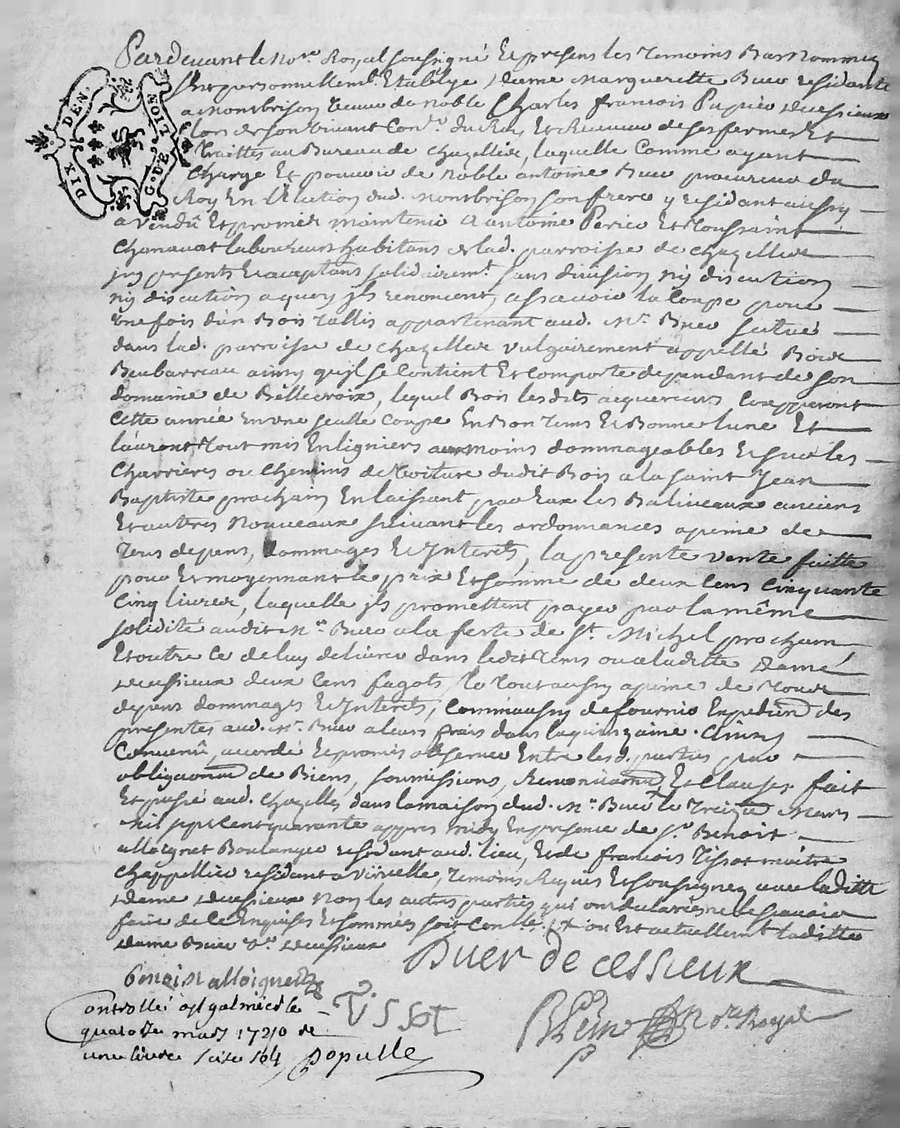 DIX DEN.
G. DE NOIT
Pardevant le No.re Royal soussigné Et presens les Temoins Bas Nommez
fut personnellem.t Etablye, dame Marguerette Buer residante
a Montbrison veuve de noble Charles francois Papier de cessieux
Lors de son vivant Con.er du Roy Et Receveur de ses fermes Et
Traittes au Bureau de Chazelles, laquelle Comme ayant
Charge Et pouvoir de Noble antoine Buer procureur du
Roy En l'Election dud. Montbrison son frere y residant aussy
a vendû Et promis maintenir a antoine Perier Et Toussaint
Chanavat laboureurs habitans de lad. parroisse de Chazelles
jcy presents Et aceptans solidairem.t sans division nÿ discution
nÿ discution a quoy jls renoncent, assavoir la Coupe pour
une fois d'un Bois Tallis appartenant aud. S.r Buer scitué
dans lad. parroisse de Chazelles vulgairement appellé Bois
Beubarreau ainsy qu'jl se Contient Et Comporte dependant de son
domaine de Bellecroix, lequel Bois lesdits acquereurs Coupperont
Cette année En une seulle Coupe En Bon Tems Et Bonne lune Et
l'auront Tout mis En ligniers au moins dommageables Et sur les
Charrieres ou Chemins de Voiture dudit Bois a la saint Jean
Baptiste prochain, En laissant par Eux les Baliveaux anciens
Et autres Nouveaux suivant les ordonnances a peine de
Tous depens, dommages Et Jnterets, la presente vente faitte
pour Et moyennant le prix Et somme de deux Cens Cinquante
Cinq livres, laquelle jls promettent payer par la même
solidité audit S.r Buer a la feste de S.t Michel prochain
Et outre Ce de luy delivrer dans ledit Tems ou a laditte Dame
de cessieux deux Cens fagots, le Tout aussy a peine de Tous
depens dommages Et Jnterets, Comm'aussy de fournir Expedi.on des
presentes aud. S.r Buer a leurs frais dans la quinzaine. Ainsy
Convenû, accordé Et promis observer Entre les d. parties par
obligaõn de Biens, soumissions, Renonciaõns Et Clauses. fait
Et passé aud. Chazelles dans la maison dud. S.r Buer le Treize Mars
Mil sept Cent quarante appres midy En presence de S.r Benoit
alloignet Boulanger residant aud. lieu, Et de francois Tissot maitre
Chappellier residant a Virivelle, Temoins Requis Et soussignez avec laditte
Dame de cessieux non les autres parties qui ont declaré ne le scavoir
faire de Ce Enquises Et sommées soit Con.lle. ou Est actuellement laditte
dame Buer V.e de cessieux
Buer de cessieux
Benoist alloignet
Tissot
No.re Royal
Controllé a s.t galmier le
quatorze mars 1740 de
une livre seize s 6 d
Populle